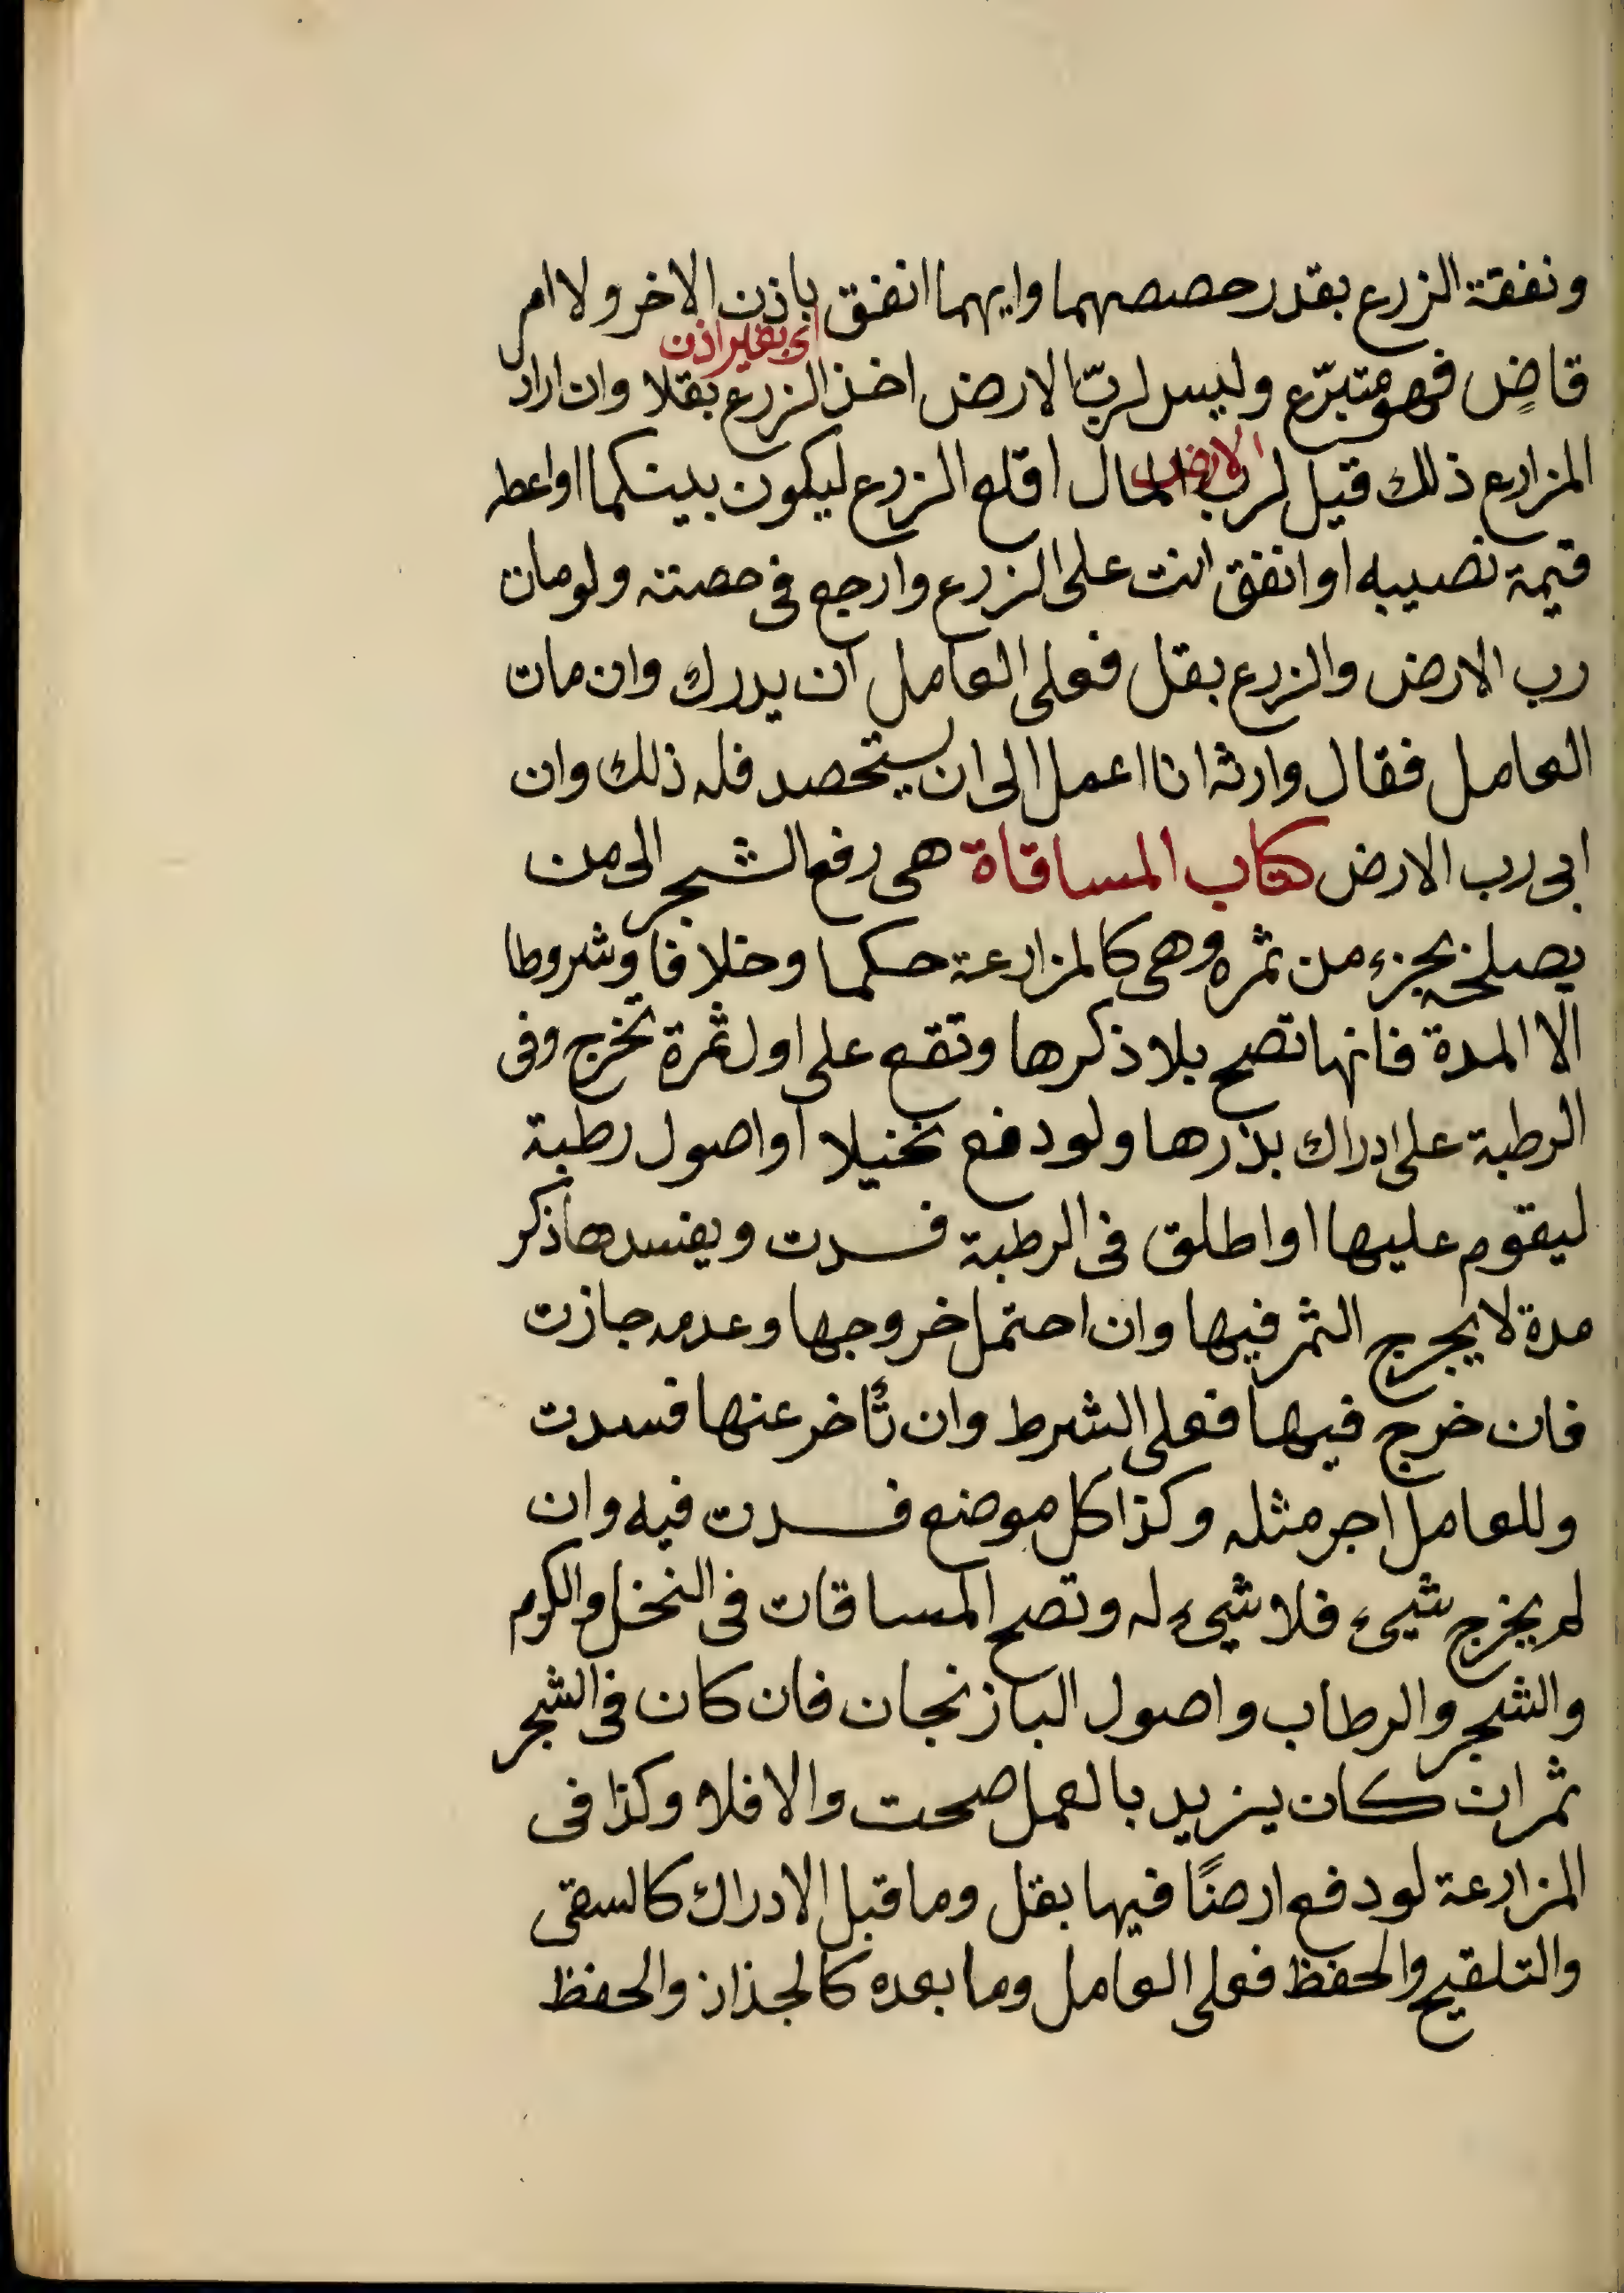 ونفقة الزرع بقدر حصصهما وايهما انفق باذن الاخر ولا امر
اى بغير اذن
قاضٍ فهو متبرّع وليس لربّ الارض اخذ الزرع بقلا وان اراد
الارض
المزارع ذلك قيل لرب المال اقلع الزرع ليكون بينكما او اعطه
قيمة نصيبه او انفق انت على الزرع وارجع فى حصته ولو مات
رب الارض والزرع بقل فعلى العامل ان يدرك وان مات
العامل فقال وارثه انا اعمل الى ان يستحصد فله ذلك وان
ابى رب الارض كتاب المساقاة هى رفع الشجر الى من
يصلحه بجزء من ثمره وهى كالمزارعة حكما وخلافا وشروطا
الا المدة فانها تصح بلا ذكرها وتقع على اول ثمرة تخرج وفى
الرطبة على ادراك بذرها ولو دفع نخيلا او اصول رطبة
ليقوم عليها او اطلق فى الرطبة فسدت ويفسدها ذكر
مدة لا يخرج الثمر فيها وان احتمل خروجها وعدمه جازت
فان خرج فيها فعلى الشرط وان تأخر عنها فسدت
وللعامل اجر مثله وكذا كل موضع فسدت فيه وان
لم يخرج شيء فلا شيء له وتصح المساقات فى النخل والكرم
والشجر والرطاب واصول الباذنجان فان كان فى الشجر
ثمر ان كان يزيد بالعمل صحت والا فلا وكذا فى
المزارعة لو دفع ارضًا فيها بقل وما قبل الادراك كالسقى
والتلقيح والحفظ فعلى العامل وما بعده كالجذاذ والحفظ